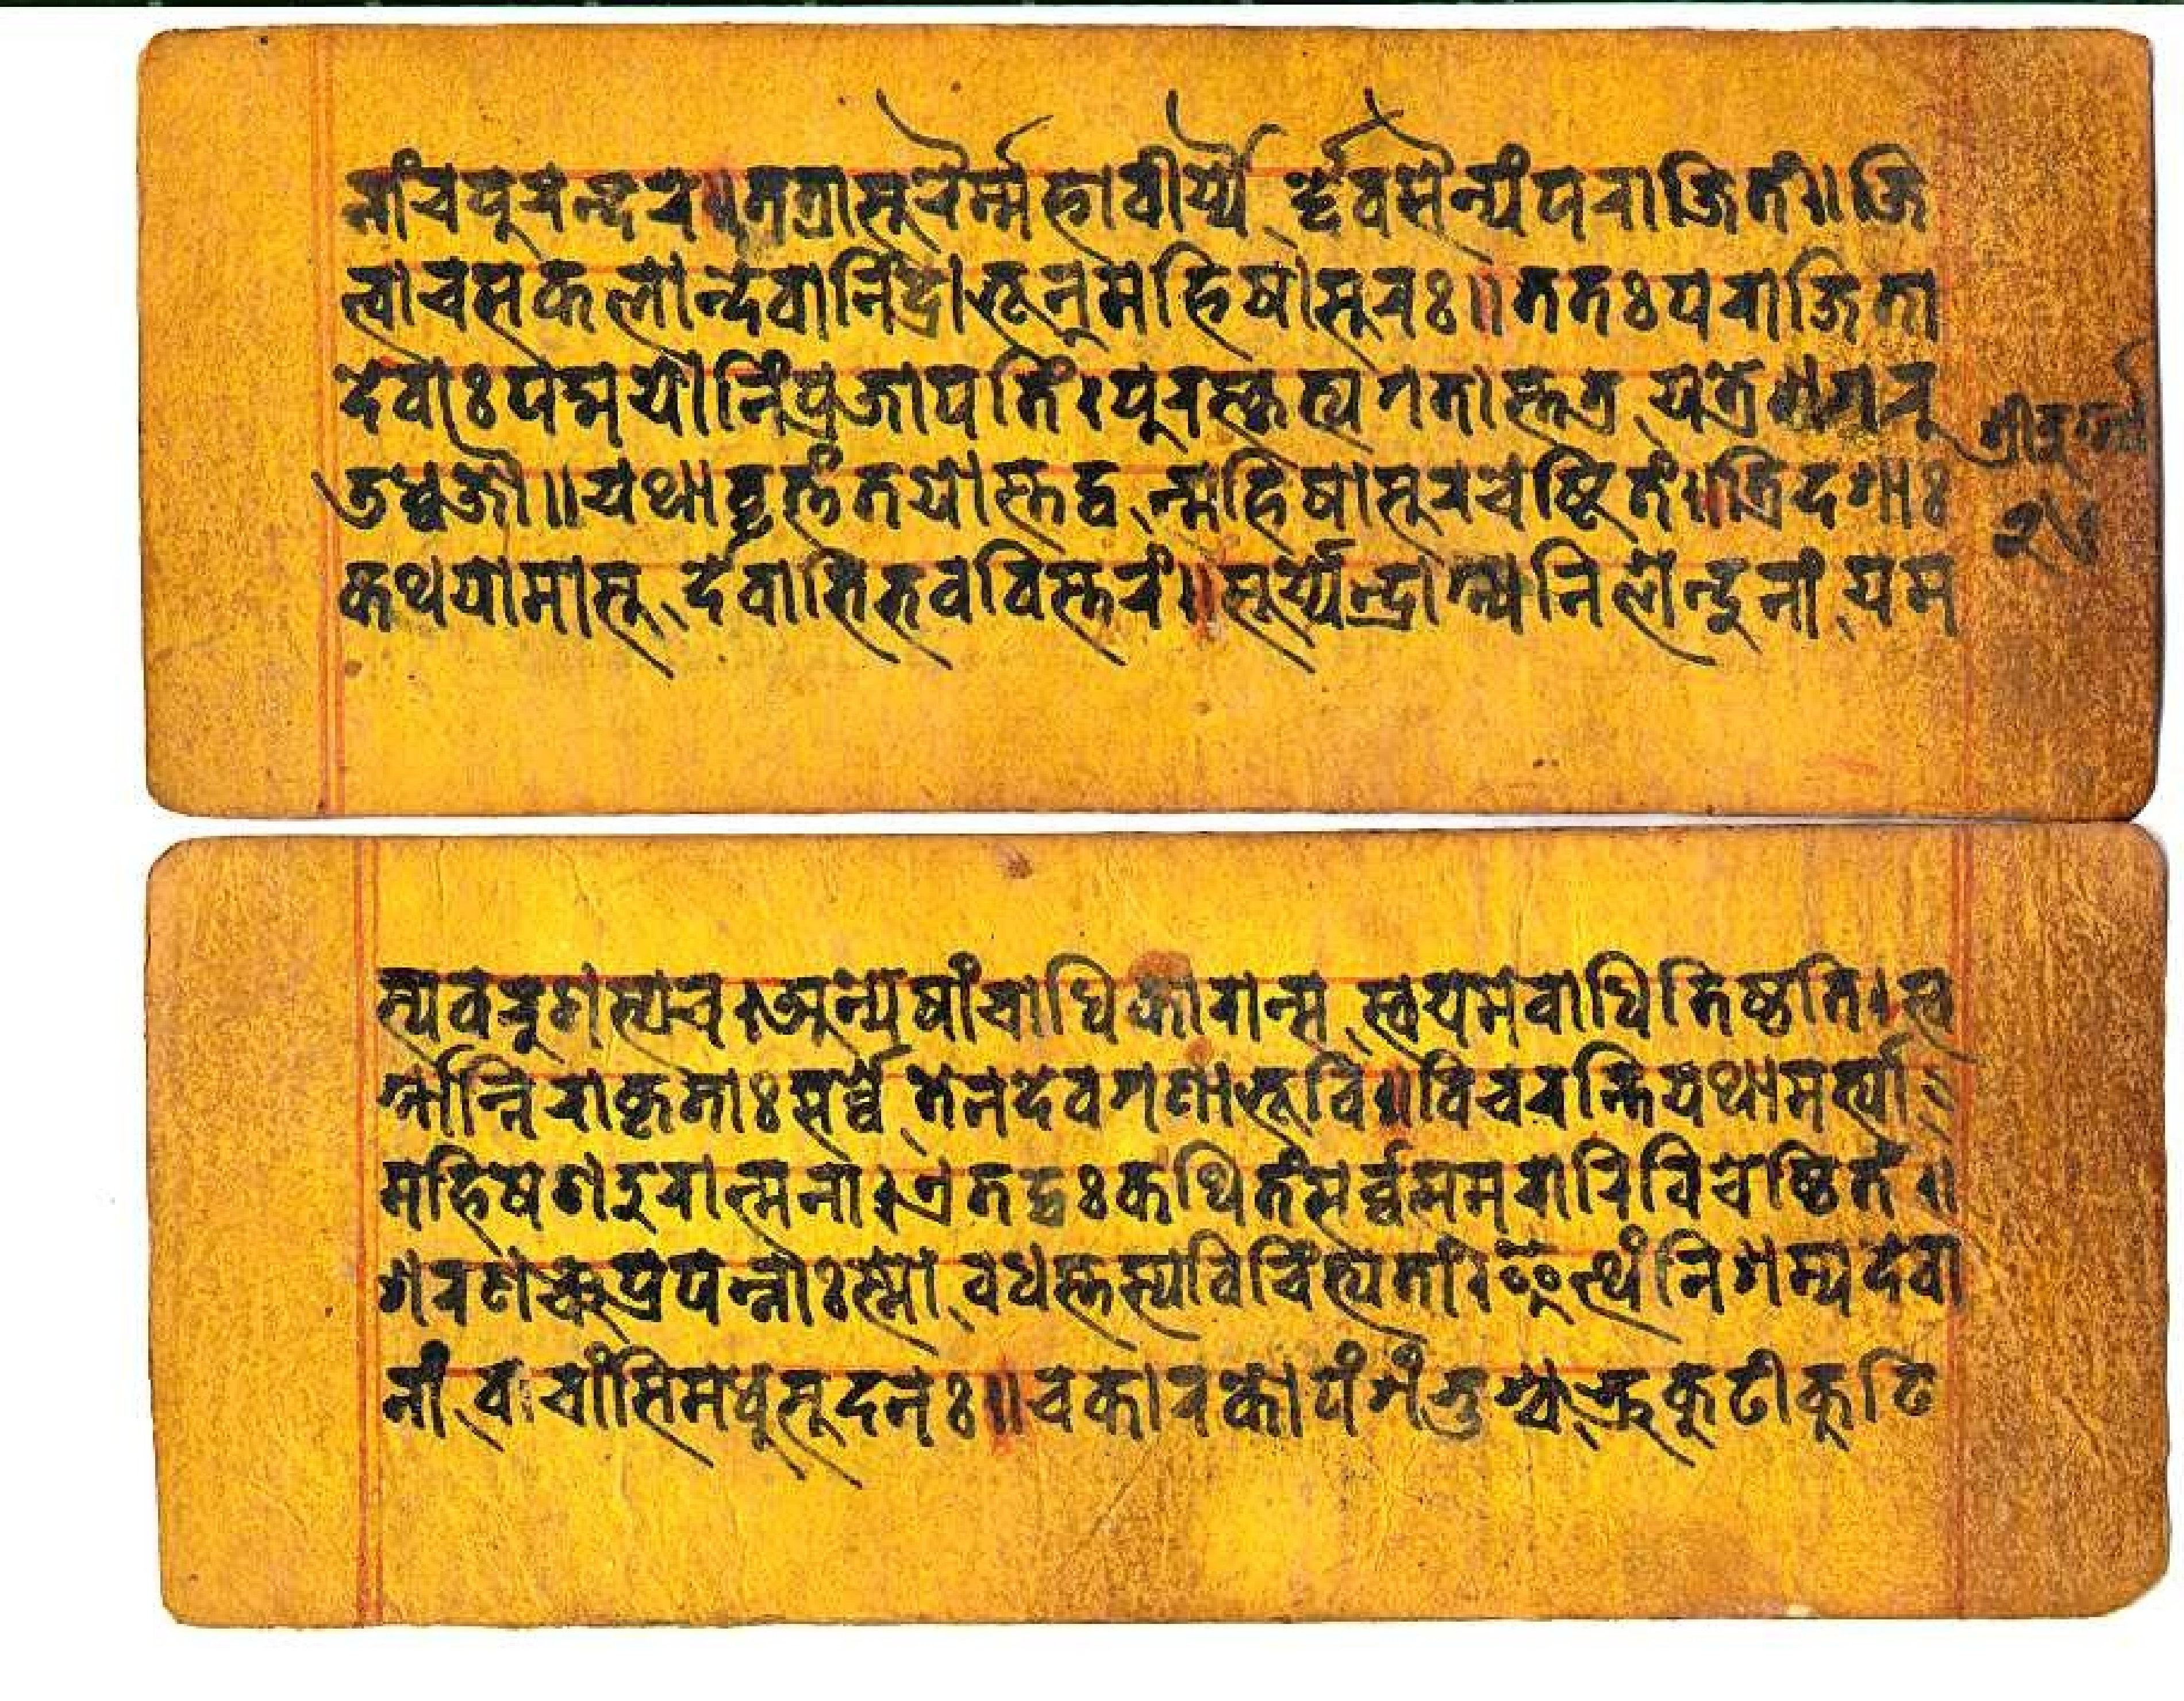 नां च पुरन्दरे॥तत्रासुरैर्म्महावीर्य्यै र्द्देवसैन्यं पराजितं॥जि
त्वा च सकलान्देवानिंद्रोभून्महिषासुरः॥ततः पराजिता
देवाः पद्मयोनिं प्रजापतिं।पुरस्कृत्य गतास्तत्र यत्रेशगरु
डध्वजौ॥यथावृत्तं तयोस्तद्व न्महिषासुरचेष्टितं॥त्रिदशाः
कथयामासु र्देवाभिभवविस्तरं॥सूर्य्येन्द्राग्न्यनिलेन्दुनां यम
स्य वरुणस्य च।अन्येषां चाधिकारान्स स्वयमेवाधितिष्ठति।स्व
र्गान्निराकृताः सर्व्वे तेन देवगणा भुवि॥विचरन्ति यथा मर्त्या
महिषेण दुरात्मना।एतद्वः कथितं सर्व्वममरारिविचेष्टितं॥
शरणञ्च प्रपन्नाः स्मो वधस्तस्य विचिंत्यतां।इत्थं निशम्य देवा
नां वचांसि मधुसूदनः॥चकार कोपं शंभुश्च भ्रुकुटीकुटि
श्रीदुर्गा
२५